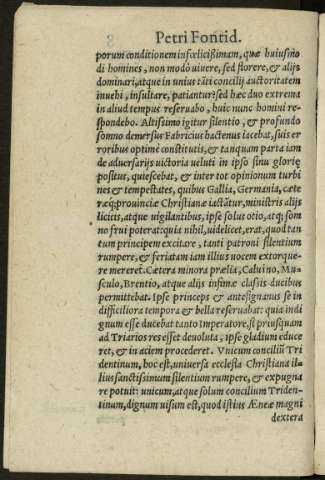 Petri Fontid.
porum conditionem infœlicißimam, quæ huiusmo
di homines, non modò viuere, sed florere, & alijs
dominari, atque in unius tãti concilij auctoritatem
inuehi, insultare, patiantur? sed hæc duo extrema
in aliud tempus reseruabo, huic nunc homini re-
spondebo. Altißimo igitur silentio, & profundo
somno demersus Fabricius hactenus iacebat, suis er
roribus optimè constitutis, & tanquam parta iam
de aduersarijs uictoria ueluti in ipso sinu gloriæ
positus, quiescebat, & inter tot opinionum turbi
nes & tempestates, quibus Gallia, Germania, cæte
ræq; prouinciæ Christianæ iactãtur, ministris alijs
licitis, atque uigilantibus, ipse solus otio, atq; som
no frui poterat: quia nihil, uidelicet, erat, quod tan
tum principem excitare, tanti patroni silentium
rumpere, & feriatam iam illius uocem extorque-
re mereret. Cætera minora prælia, Caluino, Mu-
sculo, Brentio, atque alijs infimæ classis ducibus
permittebat. Ipse princeps & antesignanus se in
difficiliora tempora & bella reseruabat: quia indi
gnum esse ducebat tanto Imperatore, si priusquam
ad Triarios res esset deuoluta, ipse gladium educe
ret, & in aciem procederet. Vnicum conciliũ Tri
dentinum, hoc est, uniuersa ecclesia Christiana il-
lius sanctissimum silentium rumpere, & expugna
re potuit: unicum, atque solum concilium Triden-
tinum, dignum uisum est, quod istius Æneæ magni
dextera